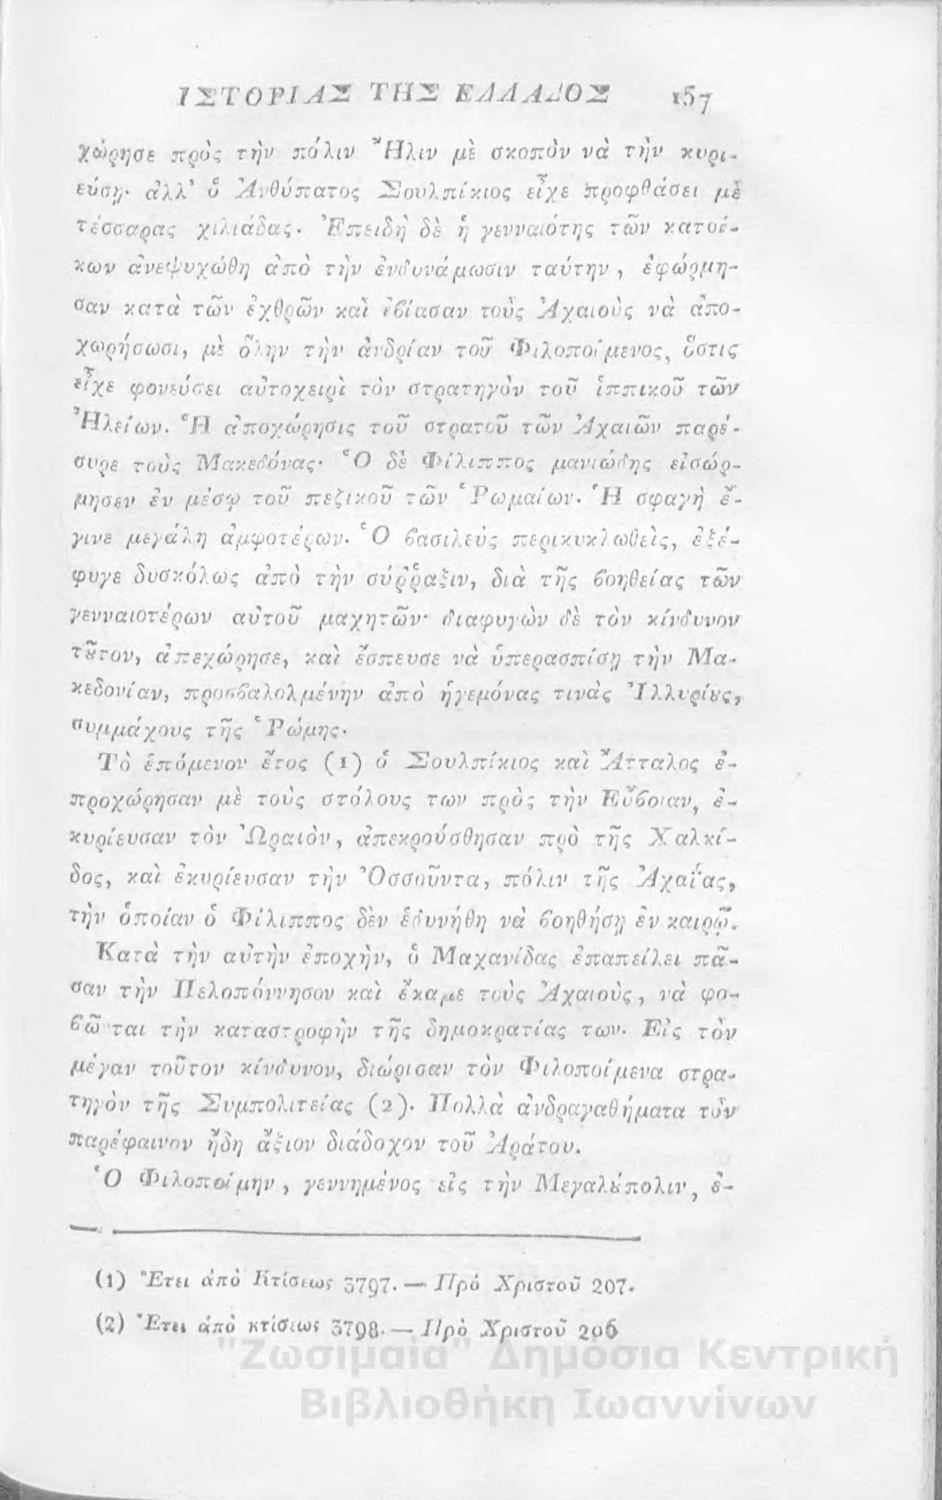 ΙΣΤΟΡΙΑΣ ΤΗΣ ΕΛΛΑΔΟΣ 157
χώρησε πρὸς τὴν πόλιν Ἦλιν μὲ σκοπὸν νὰ τὴν κυρι-
εύσῃ· ἀλλ' ὁ Ἀνθύπατος Σουλπίκιος εἶχε προφθάσει μὲ
τέσσαρας χιλιάδας. Ἐπειδὴ δὲ ἡ γενναιότης τῶν κατοί-
κων ἀνεψυχώθη ἀπὸ τὴν ἐνδυνάμωσιν ταύτην, ἐφώρμη-
σαν κατὰ τῶν ἐχθρῶν καὶ ἐβίασαν τοὺς Ἀχαιοὺς νὰ ἀπο-
χωρήσωσι, μὲ ὅλην τὴν ἀνδρίαν τοῦ Φιλοποίμενος, ὅστις
εἶχε φονεύσει αὐτοχειρὶ τὸν στρατηγὸν τοῦ ἱππικοῦ τῶν
Ἠλείων. Ἡ ἀποχώρησις τοῦ στρατοῦ τῶν Ἀχαιῶν παρέ-
συρε τοὺς Μακεδόνας· Ὁ δὲ Φίλιππος μανιώδης εἰσώρ-
μησεν ἐν μέσῳ τοῦ πεζικοῦ τῶν Ῥωμαίων. Ἡ σφαγὴ ἔ-
γινε μεγάλη ἀμφοτέρων. Ὁ βασιλεὺς περικυκλωθεὶς, ἐξέ-
φυγε δυσκόλως ἀπὸ τὴν σύῤῥαξιν, διὰ τῆς βοηθείας τῶν
γενναιοτέρων αὐτοῦ μαχητῶν· διαφυγὼν δὲ τὸν κίνδυνον
τȣ͂τον, ἀπεχώρησε, καὶ ἔσπευσε νὰ ὑπερασπίσῃ τὴν Μα-
κεδονίαν, προσβαλολμένην ἀπὸ ἡγεμόνας τινὰς Ἰλλυρίȣς,
συμμάχους τῆς Ῥώμης.
Τὸ ἑπόμενον ἔτος (1) ὁ Σουλπίκιος καὶ Ἄτταλος ἐ-
προχώρησαν μὲ τοὺς στόλους των πρὸς τὴν Εὔβοιαν, ἐ-
κυρίευσαν τὸν Ὠραιὸν, ἀπεκρούσθησαν πρὸ τῆς Χαλκί-
δος, καὶ ἐκυρίευσαν τὴν Ὀσσοῦντα, πόλιν τῆς Ἀχαΐας,
τὴν ὁποίαν ὁ Φίλιππος δὲν ἐδυνήθη νὰ βοηθήσῃ ἐν καιρῷ.
Κατὰ τὴν αὐτὴν ἐποχὴν, ὁ Μαχανίδας ἐπαπείλει πᾶ-
σαν τὴν Πελοπόννησον καὶ ἔκαμε τοὺς Ἀχαιοὺς, νὰ φο-
βῶνται τὴν καταστροφὴν τῆς δημοκρατίας των. Εἰς τὸν
μέγαν τοῦτον κίνδυνον, διώρισαν τὸν Φιλοποίμενα στρα-
τηγὸν τῆς Συμπολιτείας (2). Πολλὰ ἀνδραγαθήματα τὸν
παρέφαινον ἤδη ἄξιον διάδοχον τοῦ Ἀράτου.
Ὁ Φιλοποίμην, γεννημένος εἰς τὴν Μεγαλȣ́πολιν, ἐ-
(1) Ἔτει ἀπὸ Κτίσεως 3797. — Πρὸ Χριστοῦ 207.
(2) Ἔτει ἀπὸ κτίσεως 3798. — Πρὸ Χριστοῦ 206
"Ζωσιμαία" Δημόσια Κεντρική
Βιβλιοθήκη Ιωαννίνων